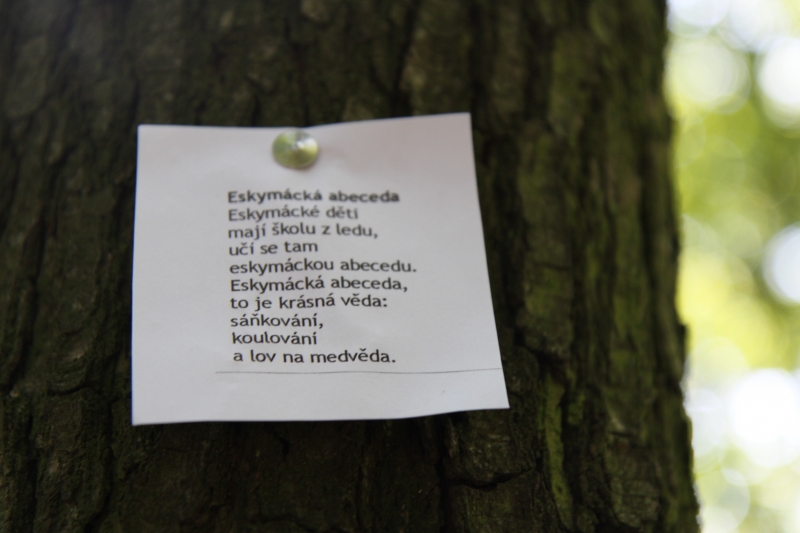 Eskymácká abeceda
Eskymácké děti
mají školu z ledu,
učí se tam
eskymáckou abecedu.
Eskymácká abeceda,
to je krásná věda:
sáňkování,
koulování
a lov na medvěda.